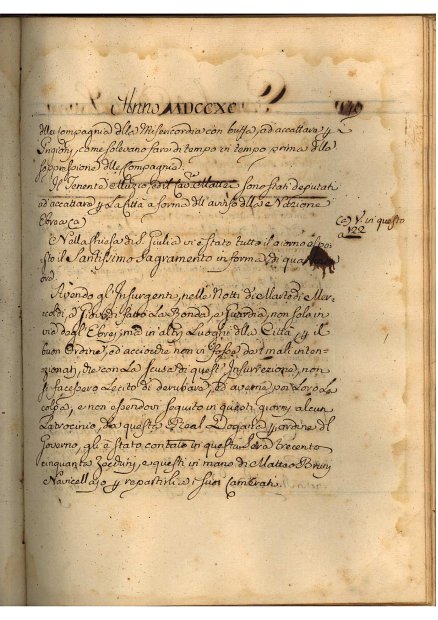 Anno MDCCXC
della Compagnia della Misericordia con bussa, ad accattare p
Prigioni, come solevano fare di tempo in tempo prima della
soppressione delle Compagnie.
Il Tenente e il Cav. sono stati deputati
ad accattare p La Città a forma dell avviso della Nazione
Ebraica (a)
(a) V. in questo
a 122
Nella Chiesa di S. Giulia vi è stato tutto il giorno espo
sto il Santissimo Sagramento in forma di
Avendo gl'Insurgenti, nelle Notti di Martedì, Mer
coledì, e Giovedì fatto La Ronda, e Guardia, non solo in
via degl'Ebrei, ma in altri Luoghi della Città, p il
buon Ordine, ed acciocchè non vi fosse dai mali inten
zionati, che con La scusa di quest'Insurrezione, non
si facessero Lecito di derubare, ed averne poi Loro La
colpa, e non essendon seguito in questi giorni alcun
Latrocinio, da questa Real Dogana p ordine del
Governo, gli è stato contato in questa Sera trecento
cinquanta Zecchini, e questi in mano di Matteo Bruni
Navicellajo p repartirli a i suoi Camerati.